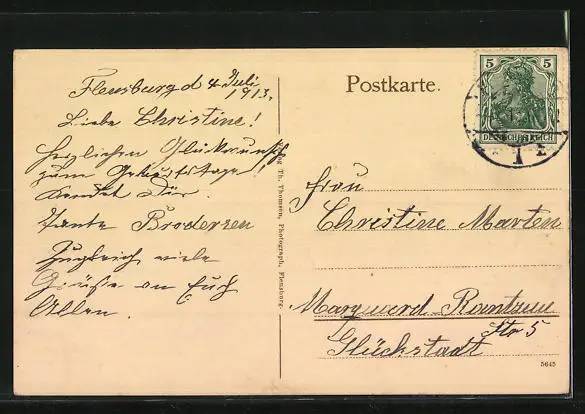 Flensburg d 4 Juli
1913.
Liebe Christine!
Herzlichen Glückwunsch
zum Geburtstage!
sendet Dir
Tante Brodersen
Zugleich viele
Grüße an Euch
Allen.
Postkarte.
5 5
DEUTSCHES REICH
Frau
Christine Marten
Marquard Rantzau
Str 5
Glückstadt
Th. Thomsen, Photograph, Flensburg.
5645